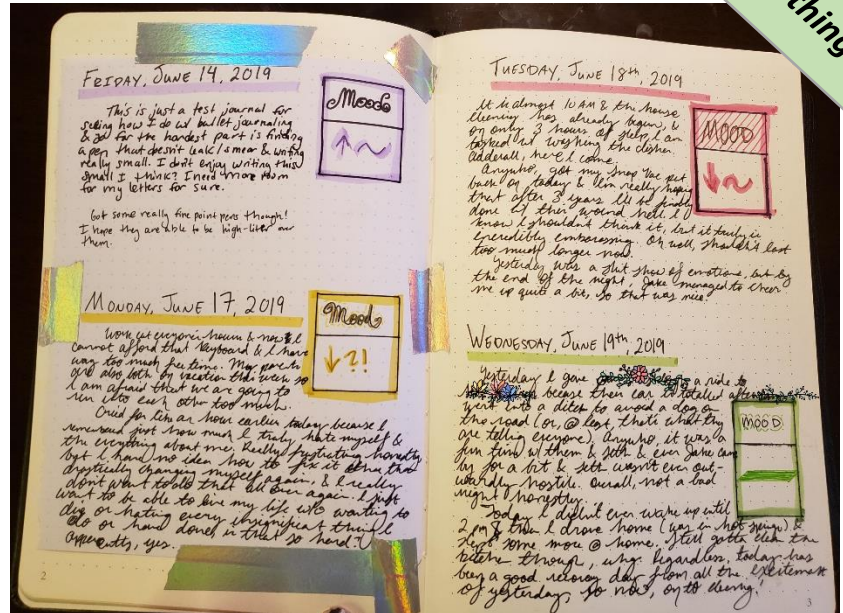 thing
FRIDAY, JUNE 14, 2019
Mood
This is just a test journal for
seeing how I do w/ bullet journaling
& so far the hardest part is finding
a pen that doesn't leak/smear & writing
really small. I don't enjoy writing this
small I think? I need more room
for my letters for sure.
Got some really fine point pens though!
I hope they are able to be high-lited over
them.
MONDAY, JUNE 17, 2019
Mood
?!
Work cut everyone's hours & now I
cannot afford that keyboard & I have
way too much free time. My parents
are also both on vacation this week so
I am afraid that we are going to
run into each other too much.
Cried for like an hour earlier today because I
remembered just how much I truly hate myself &
the everything about me. Really frustrating honestly
but I have no idea how to fix it other than
drastically changing myself again, & I really
don't want to do that all over again. I just
want to be able to live my life w/o wanting to
die or hating every insignificant thing I
do or have done, is that so hard?
Apparently, yes.
2
TUESDAY, JUNE 18th, 2019
MOOD
It is almost 10 AM & the house
cleaning has already begun, &
on only 3 hours of sleep, I am
tasked w/ washing the dishes.
Adderall, here I come.
Anywho, got my Vac put
back on today & I'm really hoping
that after 3 years I'll be finally
done w/ this wound hell. I
know I shouldn't think it, but it truly is
incredibly embarassing. Oh well, shouldn't last
too much longer now.
Yesterday was a shit show of emotions, but by
the end of the night, Jake managed to cheer
me up quite a bit, so that was nice.
WEDNESDAY, JUNE 19th, 2019
MOOD
Yesterday I gave a ride to
because their car is totalled after
went into a ditch to avoid a dog on
the road (or, @ least, thats what they
are telling everyone). Anywho, it was a
fun time w/ them & Seth & even Jake came
by for a bit & Seth wasn't even out-
wardly hostile. Overall, not a bad
night honestly.
Today I didn't even wake up until
2 pm & then I drove home (was in hot springs) &
slept some more @ home. Still gotta clean the
kitchen though, ugh. Regardless, today has
been a good recovery day from all the excitement
of yesterday, so now, onto cleaning!
3